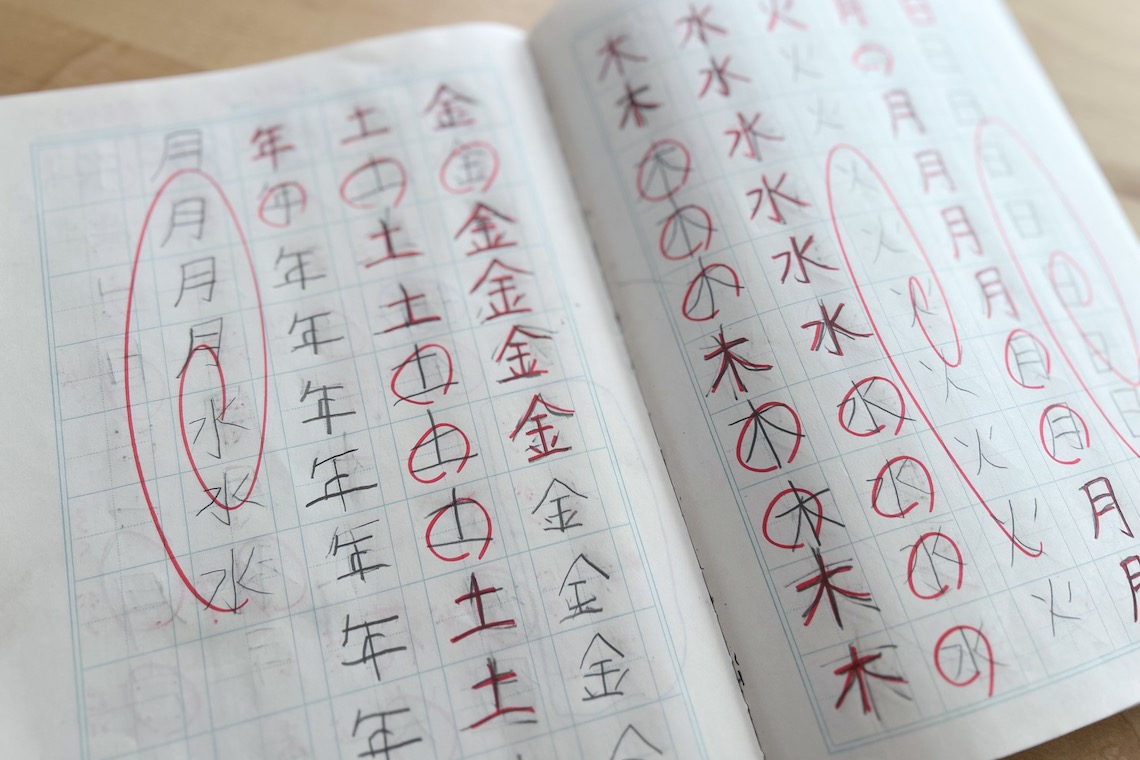 日日日日日日日日
月月月月月月月月月
火火火火火火火火火火
水水水水水水水水水水
木木木木木木木木木木
金金金金金金金金金
土土土土土土土土土
年年年年年年年年年
月月月月水水水